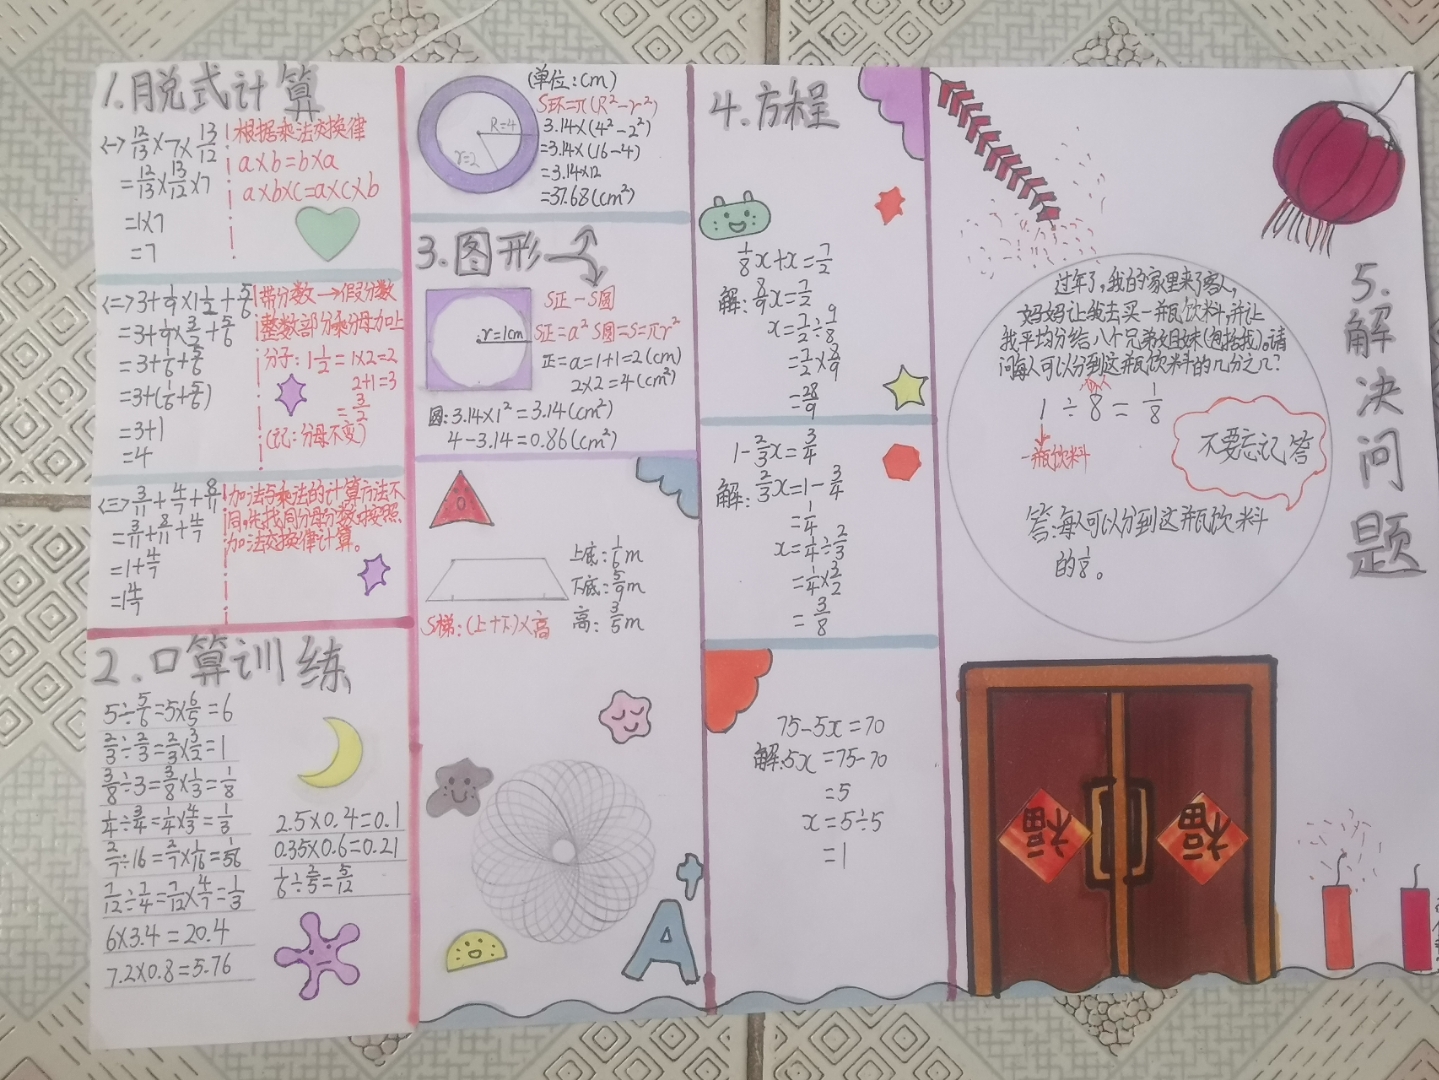 1.脱式计算
<一> 12/13×7×13/12
=12/13×13/12×7
=1×7
=7
根据乘法交换律
a×b=b×a
a×b×c=a×c×b
<二> 3+1/9×1 1/2+5/6
=3+1/9×3/2+5/6
=3+1/6+5/6
=3+(1/6+5/6)
=3+1
=4
带分数→假分数
整数部分乘分母加上
分子:1 1/2=1×2=2
2+1=3
=3/2
(记:分母不变)
<三> 3/11+4/7+8/11
=3/11+8/11+4/7
=1+4/7
=1 4/7
加法与乘法的计算方法不
同,先找同分母分数,按照
加法交换律计算。
2.口算训练
5÷5/6=5×6/5=6
2/3÷2/3=2/3×3/2=1
3/8÷3=3/8×1/3=1/8
1/4÷3/4=1/4×4/3=1/3
2/7÷16=2/7×1/16=1/56
7/12÷7/4=7/12×4/7=1/3
6×3.4=20.4
7.2×0.8=5.76
2.5×0.4=0.1
0.35×0.6=0.21
1/6÷2/5=5/12
(单位:cm)
R=4
r=2
S环=π(R²-r²)
3.14×(4²-2²)
=3.14×(16-4)
=3.14×12
=37.68(cm²)
3.图形
r=1cm
S正-S圆
S正=a² S圆=S=πr²
正=a=1+1=2(cm)
2×2=4(cm²)
圆:3.14×1²=3.14(cm²)
4-3.14=0.86(cm²)
上底:1/6m
下底:5/9m
高:3/5m
S梯:(上+下)×高
A+
4.方程
1/8x+x=7/2
解:8/9x=7/2
x=7/2÷9/8
=7/2×8/9
=28/9
1-2/3x=3/4
解:2/3x=1-3/4
=1/4
x=1/4÷2/3
=1/4×3/2
=3/8
75-5x=70
解:5x=75-70
=5
x=5÷5
=1
5.解决问题
过年了,我的家里来了客人,
妈妈让我去买一瓶饮料,并让
我平均分给八个兄弟姐妹(包括我)。请
问每人可以分到这瓶饮料的几分之几?
1÷8=1/8
一瓶饮料
不要忘记答
答:每人可以分到这瓶饮料
的1/8。
福
福